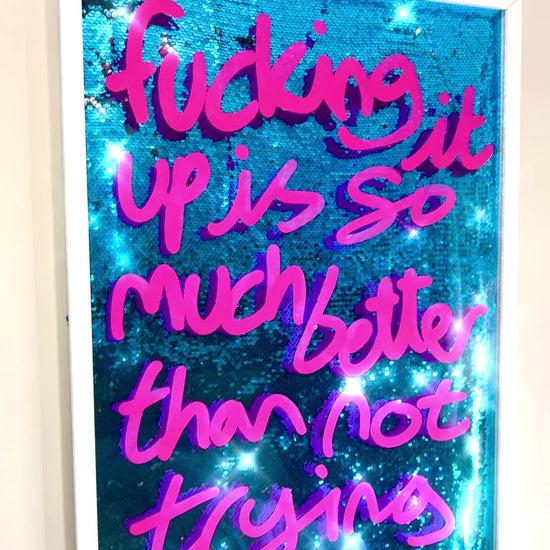 fucking it
up is so
much better
than not
trying